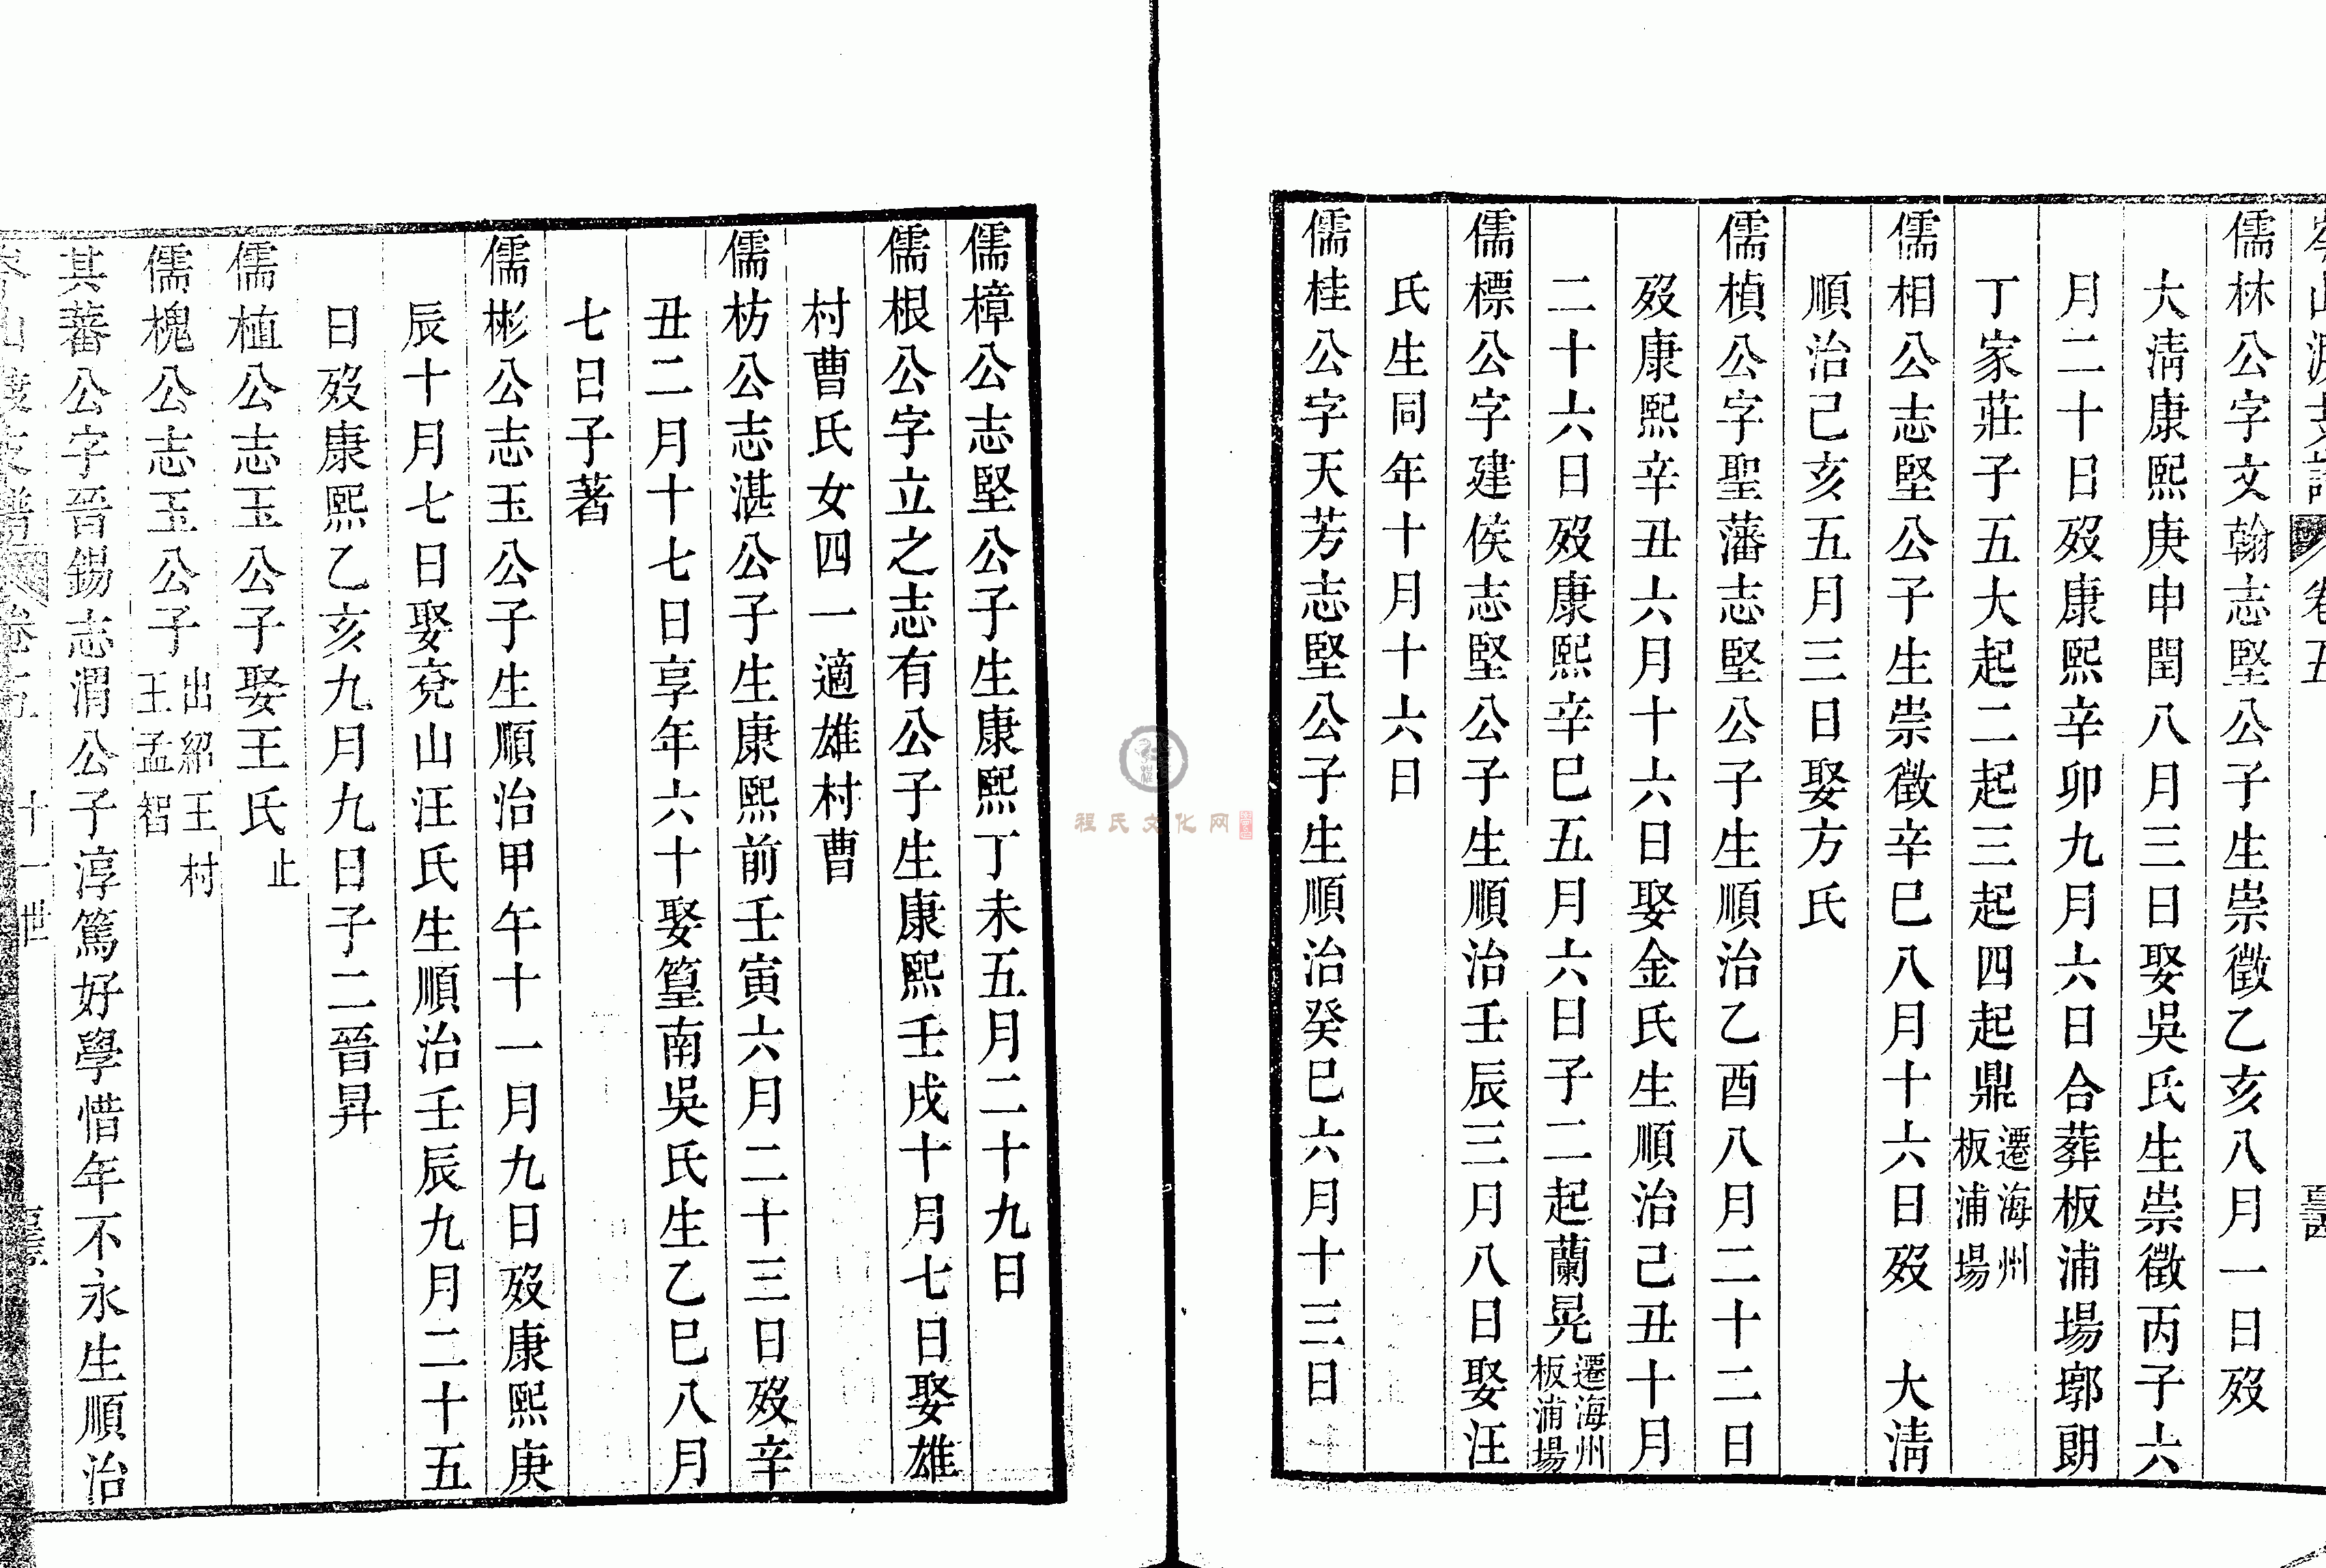 岑山渡支譜 卷五
儒林公字文翰志堅公子生崇徵乙亥八月一日歿
大淸康熙庚申閏八月三日娶吳氏生崇徵丙子六
月二十日歿康熙辛卯九月六日合葬板浦場鄈朗
丁家莊子五大起二起三起四起鼎遷海州板浦場
儒相公志堅公子生崇徵辛巳八月十六日歿 大淸
順治己亥五月三日娶方氏
儒楨公字聖藩志堅公子生順治乙酉八月二十二日
歿康熙辛丑六月十六日娶金氏生順治己丑十月
二十六日歿康熙辛巳五月六日子二起蘭晃遷海州板浦場
儒標公字建侯志堅公子生順治壬辰三月八日娶汪
氏生同年十月十六日
儒桂公字天芳志堅公子生順治癸巳六月十三日
儒樟公志堅公子生康熙丁未五月二十九日
儒根公字立之志有公子生康熙壬戌十月七日娶雄
村曹氏女四一適雄村曹
儒枋公志湛公子生康熙前壬寅六月二十三日歿辛
丑二月十七日享年六十娶篁南吳氏生乙巳八月
七日子著
儒彬公志玉公子生順治甲午十一月九日歿康熙庚
辰十月七日娶兗山汪氏生順治壬辰九月二十五
日歿康熙乙亥九月九日子二晉昇
儒植公志玉公子娶王氏止
儒槐公志玉公子出紹王村王孟智
其蕃公字晉錫志渭公子淳篤好學惜年不永生順治
岑山渡支譜 卷五 十一世
程氏文化网